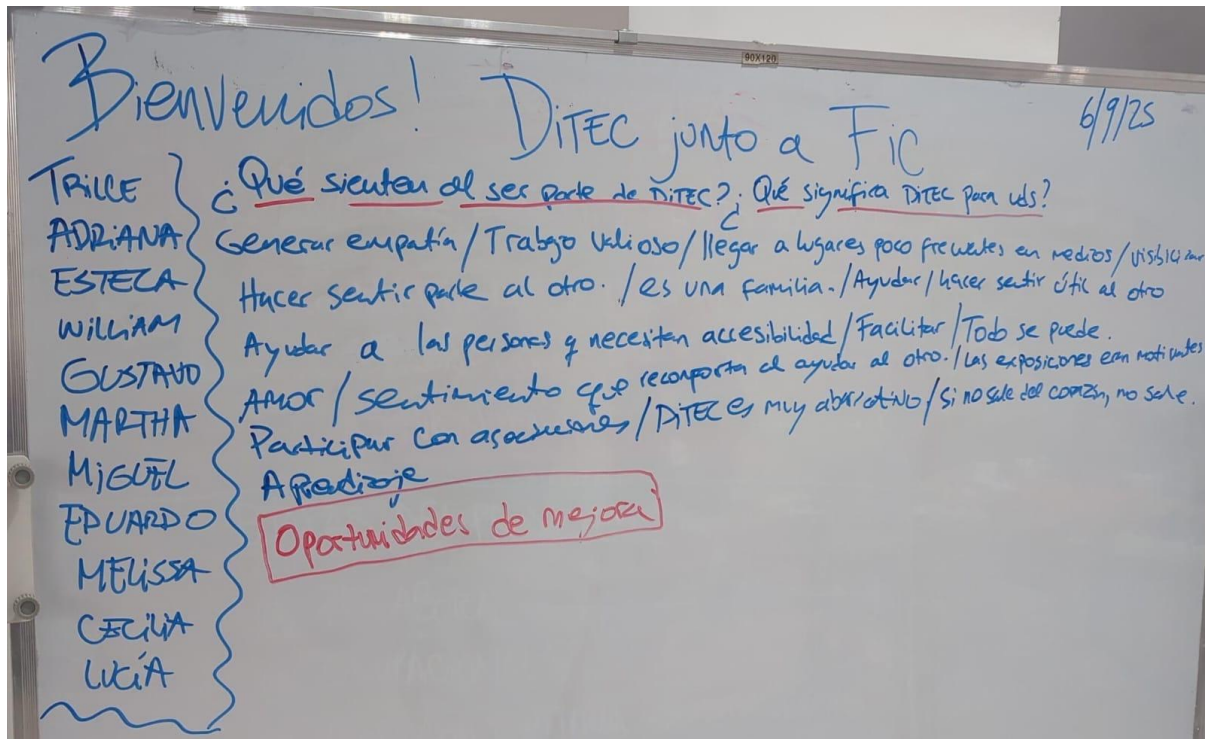 90X120
Bienvenidos! DiTEC junto a Fic
6/9/25
TRILCE
ADRiANA
ESTELA
WiLLiAM
GUSTAVO
MARTHA
MiGUEL
EDUARDO
MELiSSA
CECiLiA
LUCÍA
¿Qué sienten al ser parte de DiTEC? ¿Qué significa DiTEC para uds?
Generar empatía/Trabajo valioso/llegar a lugares poco frecuentes en medios/visibilizar
Hacer sentir parte al otro./es una familia./Ayudar/hacer sentir útil al otro
Ayudar a las personas q necesitan accesibilidad/Facilitar/Todo se puede.
Amor/sentimiento que reconforta el ayudar al otro./Las exposiciones eran motivantes
Participar con asociaciones/DiTEC es muy abarcativo/Si no sale del corazón, no sale.
Aprendizaje
Oportunidades de mejora